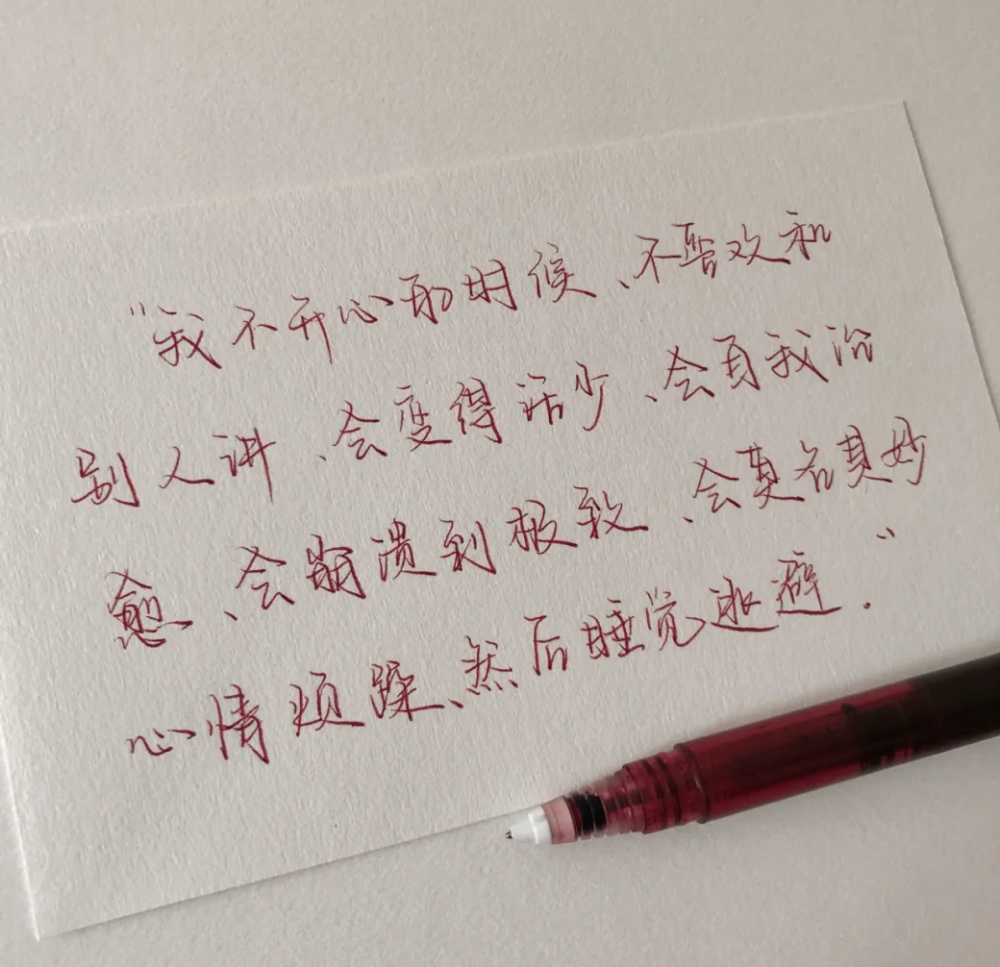 “我不开心的时候、不喜欢和
别人讲、会变得话少、会自我治
愈、会崩溃到极致、会莫名其妙
心情烦躁、然后睡觉逃避.”